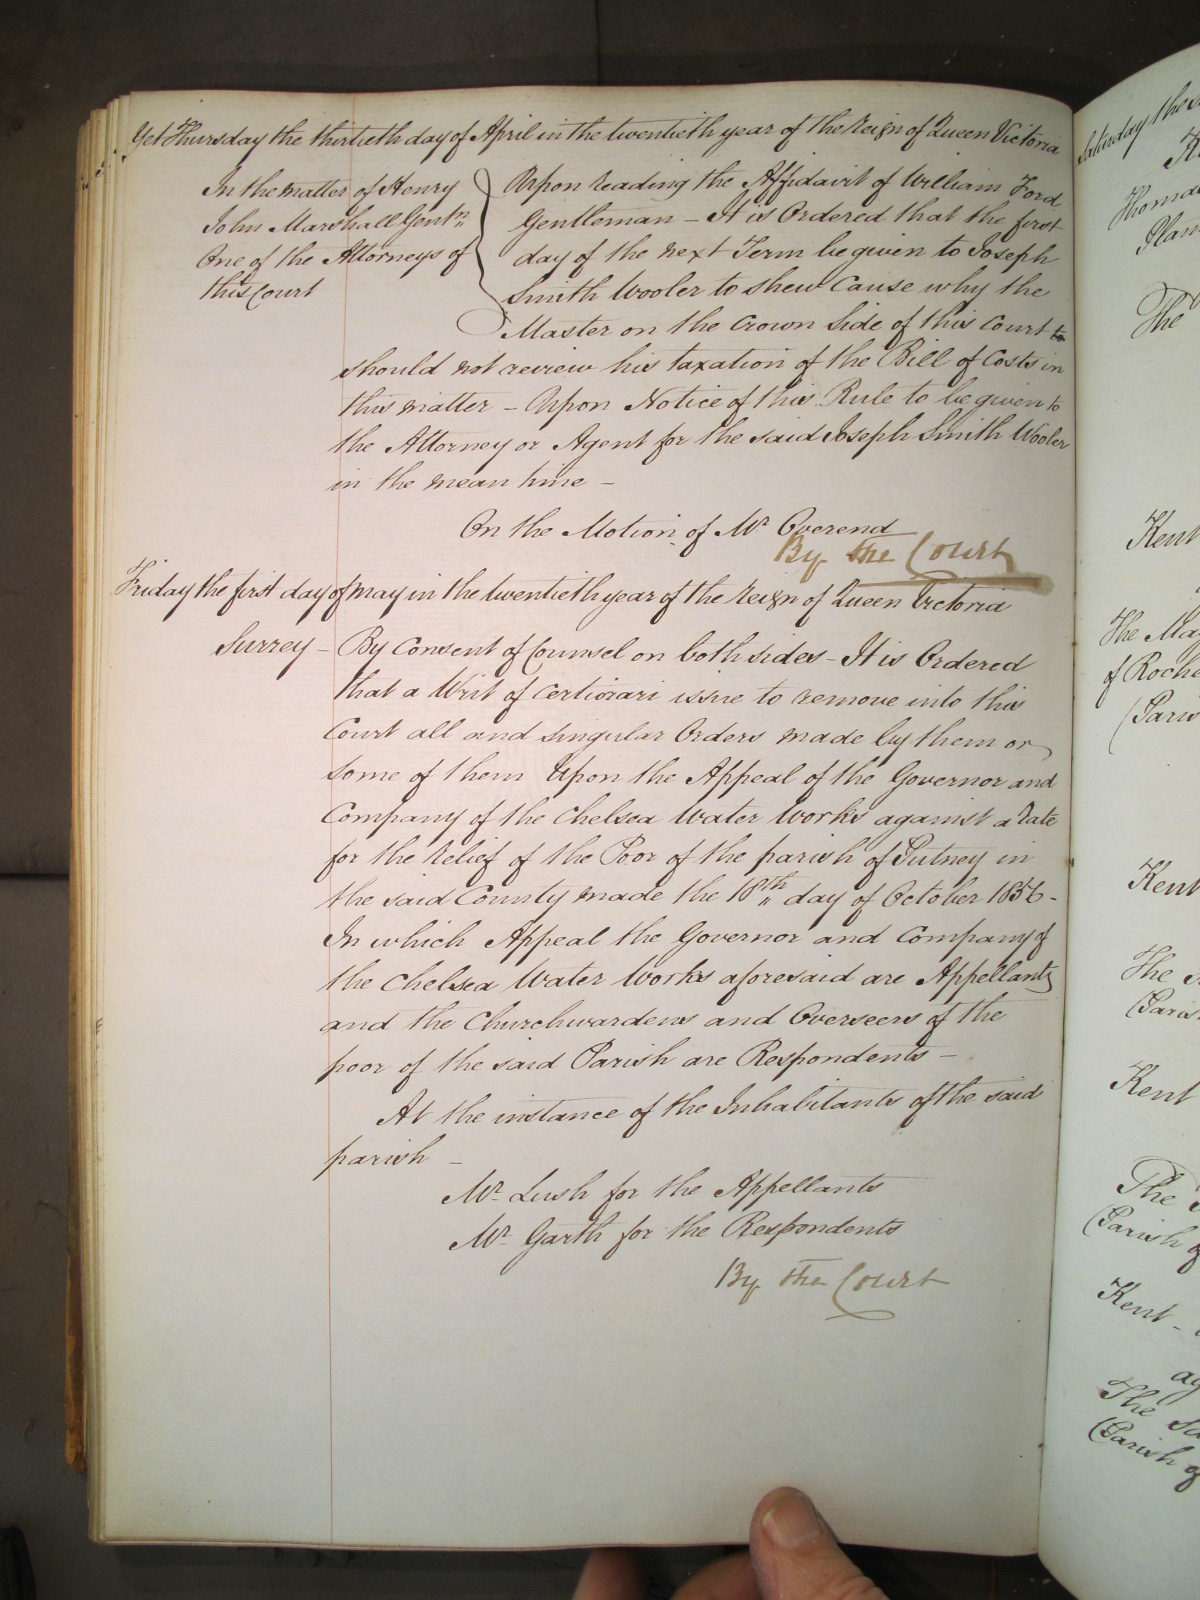 Yet Thursday the thirtieth day of April in the twentieth year of the Reign of Queen Victoria
In the matter of Henry
John Marshall Gentn
One of the Attorneys of
this Court
Upon reading the Affidavit of William Ford
Gentleman – It is Ordered that the first
day of the next Term be given to Joseph
Smith Wooler to shew Cause why the
Master on the Crown Side of this Court to
should not review his taxation of the Bill of Costs in
this matter – Upon Notice of this Rule to be given to
the Attorney or Agent for the said Joseph Smith Wooler
in the mean time –
On the Motion of Mr Overend
By the Court
Friday the first day of May in the twentieth year of the Reign of Queen Victoria
Surrey – By Consent of Counsel on both sides – It is Ordered
that a Writ of Certiorari issue to remove into this
Court all and singular Orders made by them or
some of them Upon the Appeal of the Governor and
Company of the Chelsea Water Works against a Rate
for the relief of the Poor of the parish of Putney in
the said County made the 18th day of October 1856 –
In which Appeal the Governor and Company of
the Chelsea Water Works aforesaid are Appellants
and the Churchwardens and Overseers of the
poor of the said Parish are Respondents –
At the instance of the Inhabitants of the said
parish –
Mr Lush for the Appellants
Mr Garth for the Respondents
By the Court
Saturday the
The
Kent
The
of
Kent
The
Kent
The
(Parish of
Kent –
The
(Parish of